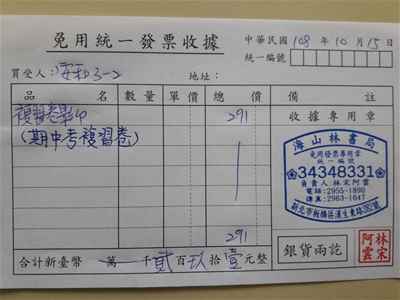 免用統一發票收據
中華民國 108 年 10 月 15 日
統一編號
買受人：安和3-2
地址：
品名 數量 單價 總價 備註
複習卷 291 收據專用章
(期中考複習卷)
海山林書局
免用發票專用章
統一編號
34348331
負責人：林宋阿雲
電話：2955-1890
傳真：2963-1647
新北市板橋區漢生東路
291
銀貨兩訖
林宋阿雲
合計新臺幣 萬 千 貳 百 玖 拾 壹 元整